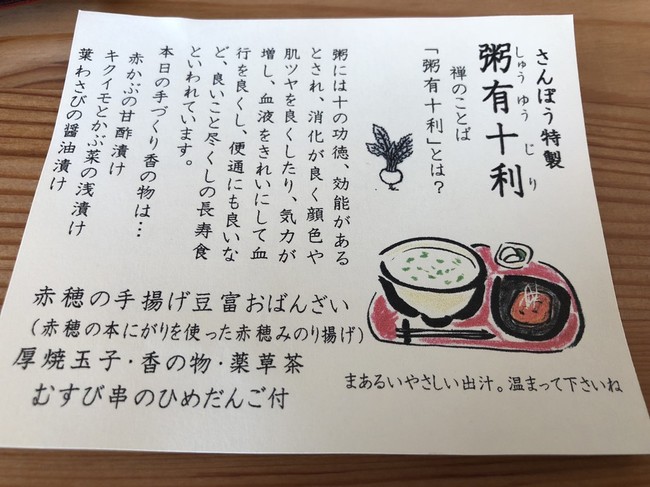 さんぽう特製
しゅうゆうじり
粥有十利
禅のことば
「粥有十利」とは？
粥には十の功徳、効能がある
とされ、消化が良く顔色や
肌ツヤを良くしたり、気力が
増し、血液をきれいにして血
行を良くし、便通にも良いな
ど、良いこと尽くしの長寿食
といわれています。
本日の手づくり香の物は…
赤かぶの甘酢漬け
キクイモとかぶ菜の浅漬け
葉わさびの醤油漬け
赤穂の手揚げ豆富おばんざい
(赤穂の本にがりを使った赤穂みのり揚げ)
厚焼玉子・香の物・薬草茶
むすび串のひめだんご付
まあるいやさしい出汁。温まって下さいね